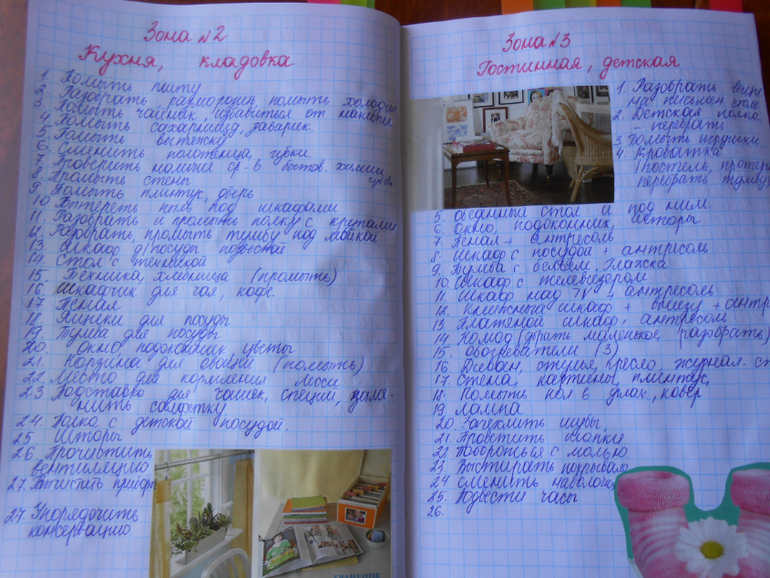 Зона №2
Кухня, кладовка
1. Помыть плиту
2. Разобрать, разморозить, помыть холодил
3. Помыть чайник, избавиться от накипи
4. Помыть сахарницу, заварник.
5. Помыть вытяжку
6. Сменить полотенца, губки
7. Проверить наличие ср-в бытов. химии,
губки
8. Промыть стены
9. Помыть плинтус, дверь
10. Вытереть пыль над шкафами
11. Разобрать и промыть полку с крупами
12. Разобрать, промыть тумбу под мойкой
13. Шкаф д/посуды подвесной
14. Стол с техникой
15. Техника, хлебница (промыть)
16. Шкафчик для чая, кофе.
17. Пенал
18. Ящики для посуды
19. Тумба для посуды
20. Окно, подоконник, цветы
21. Корзина для овощей (помыть)
22. Место для кормления Люси
23. Подставка для чашек, специи,
салфетку
24. Полка с детской посудой.
25. Шторы
26. Прочистить
вентиляцию
27. Вычистить
27. Упорядочить
консервацию.
Зона №3
Гостинная, детская
1. Разобрать вещи
на письмен столе
2. Детская полка
- перебрать
3. Помыть игрушки
4. Кроватка
(постель, протере
перебрать тумбу
5. Обеденный стол и под ним.
6. Окно, подоконник, шторы
7. Пенал + антресоль
8. Шкаф с посудой + антресоль
9. Тумба с бельем. Глажка
10. Шкаф с телевизором
11. Шкаф над TV + антресоль
12. шкаф + внизу + антр
13. Платяной шкаф + антресоль
14. Комод (убрать маленькое, разобрать)
15. Обогреватели (3)
16. Диван, стулья, кресло, журнал. ст
17. Стена, картины, плинтус,
18. Помыть пол в углах, ковер
19. Лампа
20. Зачехлить шубы,
21. Проветрить шапки
22. Побороться с молью
23. Выстирать покрывало
24. Сменить наволочки
25. Подвести часы
26.
ХРАНЕНИЕ